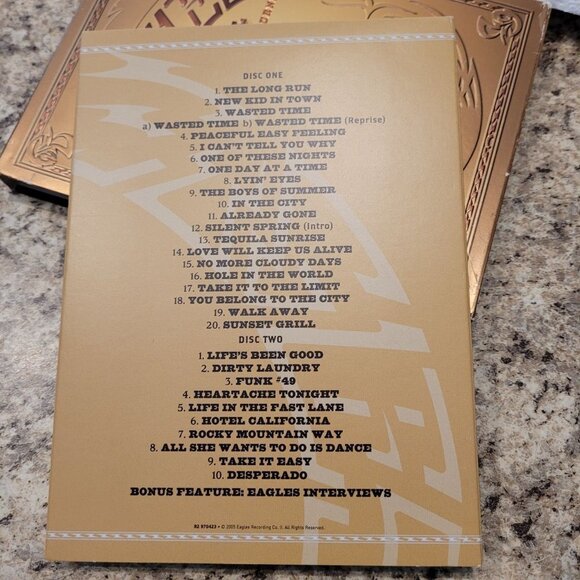 DISC ONE
1. THE LONG RUN
2. NEW KID IN TOWN
3. WASTED TIME
a) WASTED TIME b) WASTED TIME (Reprise)
4. PEACEFUL EASY FEELING
5. I CAN'T TELL YOU WHY
6. ONE OF THESE NIGHTS
7. ONE DAY AT A TIME
8. LYIN' EYES
9. THE BOYS OF SUMMER
10. IN THE CITY
11. ALREADY GONE
12. SILENT SPRING (Intro)
13. TEQUILA SUNRISE
14. LOVE WILL KEEP US ALIVE
15. NO MORE CLOUDY DAYS
16. HOLE IN THE WORLD
17. TAKE IT TO THE LIMIT
18. YOU BELONG TO THE CITY
19. WALK AWAY
20. SUNSET GRILL
DISC TWO
1. LIFE'S BEEN GOOD
2. DIRTY LAUNDRY
3. FUNK #49
4. HEARTACHE TONIGHT
5. LIFE IN THE FAST LANE
6. HOTEL CALIFORNIA
7. ROCKY MOUNTAIN WAY
8. ALL SHE WANTS TO DO IS DANCE
9. TAKE IT EASY
10. DESPERADO
BONUS FEATURE: EAGLES INTERVIEWS
R2 970423 • © 2005 Eagles Recording Co. II. All Rights Reserved.